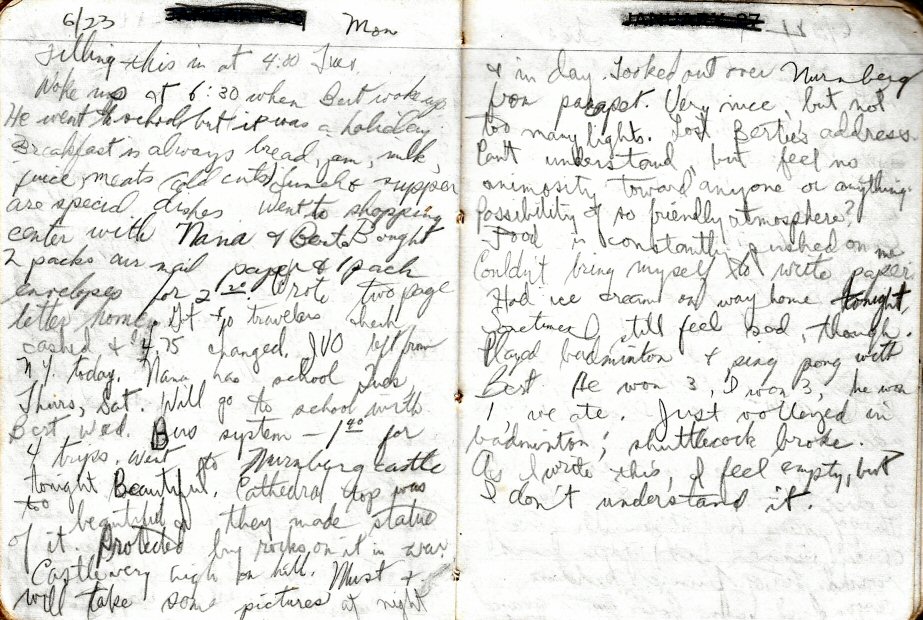 6/23 Mon
Filling this in at 4:00 Tues
Woke up at 6:30 when Bert woke up
He went to school but it was a holiday.
Breakfast is always bread, jam, milk,
juice, meats (cold cuts) Lunch & supper
are special dishes. Went to shopping
center with Nana & Bert. Bought
2 packs air mail paper & 1 pack
envelopes for 2.20. Wrote two page
letter home. Got $10 travelers check
cashed & 4.75 changed. JVO left from
N.Y. today. Nana has school Tues,
Thurs, Sat. Will go to school with
Bert Wed. Bus system - 1.40 for
4 trips. Went to Nurnberg castle
tonight Beautiful. Cathedral top was
too beautiful so they made statue
of it. Protected by rocks on it in war
Castle very high on hill. Must &
will take some pictures at night
& in day. Looked out over Nurnberg
from parapet. Very nice, but not
too many lights. Lost Bertie's address
Can't understand, but feel no
animosity toward anyone or anything.
Possibility of so friendly atmosphere?
Food is constantly pushed on me
Couldn't bring myself to write paper.
Had ice cream on way home tonight,
Sometimes I still feel sad, though.
Played badminton & ping pong with
Bert. He won 3, I won 3, he won
1, we ate. Just volleyed in
badminton; shuttlecock broke.
As I write this, I feel empty, but
I don't understand it.